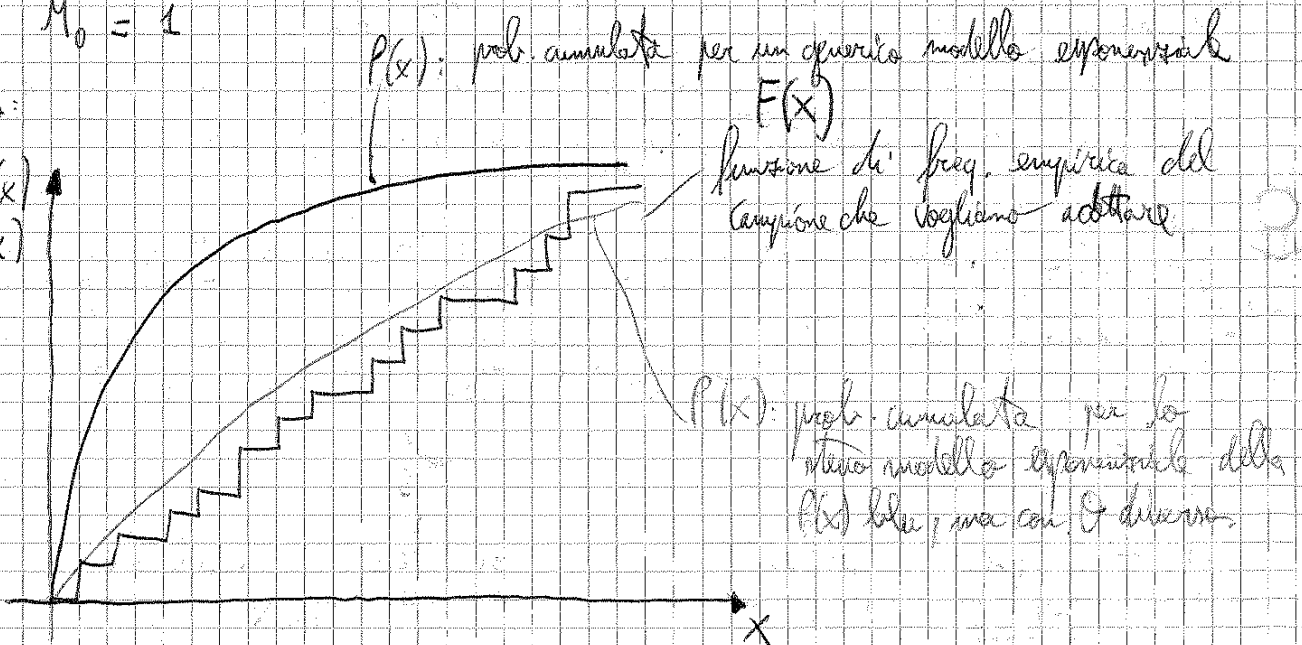 M₀ = 1
P(x): prob. cumulata per un generico modello esponenziale
F(x)
funzione di freq. empirica del
campione che vogliamo adottare
P(x): prob. cumulata per lo
stesso modello esponenziale della
P(x) blu, ma con θ diverso.
x)
x)
X